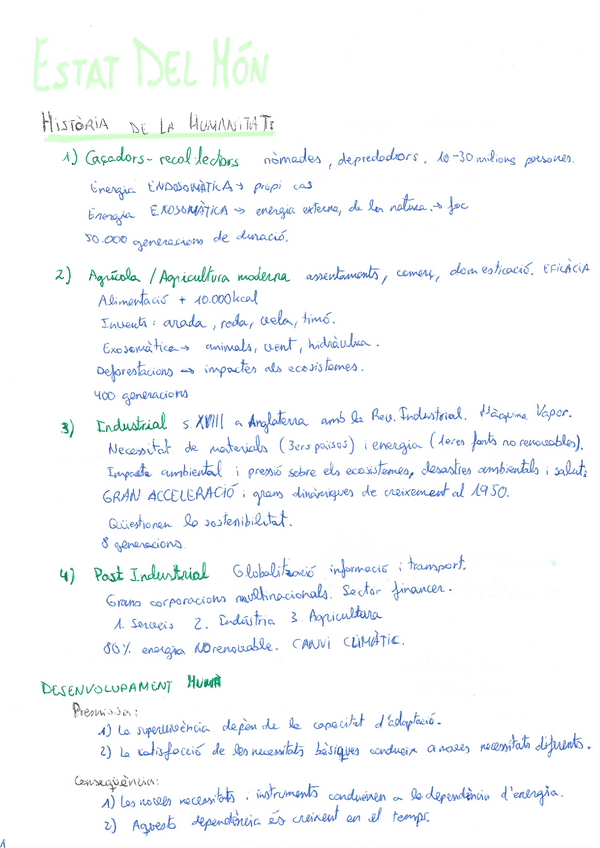 ESTAT DEL MÓN
HISTÒRIA DE LA HUMANITAT:
1) Caçadors-recol·lectors nòmades, depredadors. 10-30 milions persones.
Energia ENDOSOMÀTICA → propi cos
Energia EXOSOMÀTICA → energia externa, de la natura. → foc
50.000 generacions de duració.
2) Agrícola / Agricultura moderna assentaments, comerç, domesticació. EFICÀCIA
Alimentació + 10.000kcal
Invents: arada, roda, vela, timó.
Exosomàtica → animals, vent, hidràulica.
Deforestacions → impactes als ecosistemes.
400 generacions
3) Industrial s. XVIII a Anglaterra amb la Rev. Industrial. Màquina Vapor.
Necessitat de materials (3ers països) i energia (1eres fonts no renovables).
Impacte ambiental i pressió sobre els ecosistemes, desastres ambientals i salut;
GRAN ACCELERACIÓ i grans dinàmiques de creixement al 1950.
Qüestionen la sostenibilitat.
8 generacions
4) Post Industrial Globalització informació i transport.
Grans corporacions multinacionals. Sector financer.
1. Serveis 2. Indústria 3. Agricultura
80% energia NO renovable. CANVI CLIMÀTIC.
DESENVOLUPAMENT HUMÀ
Premissa:
1) La supervivència depèn de la capacitat d'adaptació.
2) La satisfacció de les necessitats bàsiques condueix a noves necessitats diferents.
Conseqüència:
1) Les noves necessitats i instruments condueixen a la dependència d'energia.
2) Aquesta dependència és creixent en el temps.
1